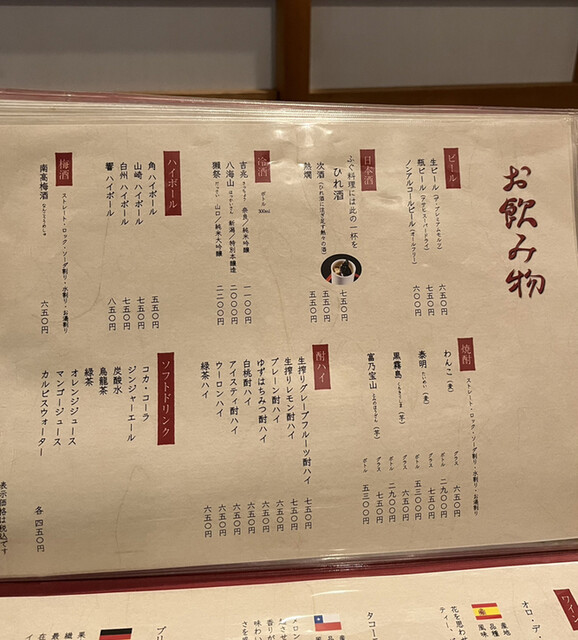 お飲み物
ビール
生ビール(ザ・プレミアムモルツ) 六五〇円
瓶ビール(アサヒスーパードライ) 七五〇円
ノンアルコールビール(オールフリー) 六〇〇円
日本酒
ふぐ料理には此の一杯を
ひれ酒 七五〇円
次酒(ひれ酒に注ぎ足す熱々の酒) 五五〇円
熱燗 五五〇円
冷酒 ボトル 300ml
吉兆 きっちょう 奈良/純米吟醸 一一〇〇円
八海山 はっかいさん 新潟/特別本醸造 二〇〇〇円
獺祭 だっさい 山口/純米大吟醸 二二〇〇円
ハイボール
角 ハイボール 五五〇円
山崎 ハイボール 七五〇円
白州 ハイボール 七五〇円
響 ハイボール 八五〇円
梅酒 ストレート・ロック・ソーダ割り・水割り・お湯割り
南高梅酒 なんこううめしゅ 六五〇円
焼酎 ストレート・ロック・ソーダ割り・水割り・お湯割り
わんこ(麦) グラス 六五〇円
ボトル 二九〇〇円
泰明 たいめい(麦) グラス 七五〇円
ボトル 五三〇〇円
黒霧島 くろきりしま(芋) グラス 六五〇円
ボトル 二九〇〇円
富乃宝山 とみのほうざん(芋) グラス 七五〇円
ボトル 五三〇〇円
酎ハイ
生搾りグレープフルーツ酎ハイ 七五〇円
生搾りレモン酎ハイ 七五〇円
プレーン酎ハイ 六五〇円
ゆずはちみつ酎ハイ 六五〇円
白桃酎ハイ 六五〇円
アイスティ酎ハイ 六五〇円
ウーロンハイ 六五〇円
緑茶ハイ 六五〇円
ソフトドリンク
コカ・コーラ
ジンジャーエール
炭酸水
烏龍茶
緑茶
オレンジジュース
マンゴージュース
カルピスウォーター
各 四五〇円
表示価格は税込です
ワイン
オロ・デ
産地
品種
風味
花を思わせ
ティー
タコー
産
品
風
メロン
起させ
香りが
味わい
さを感
ブリ
果
繊
最
在
イ